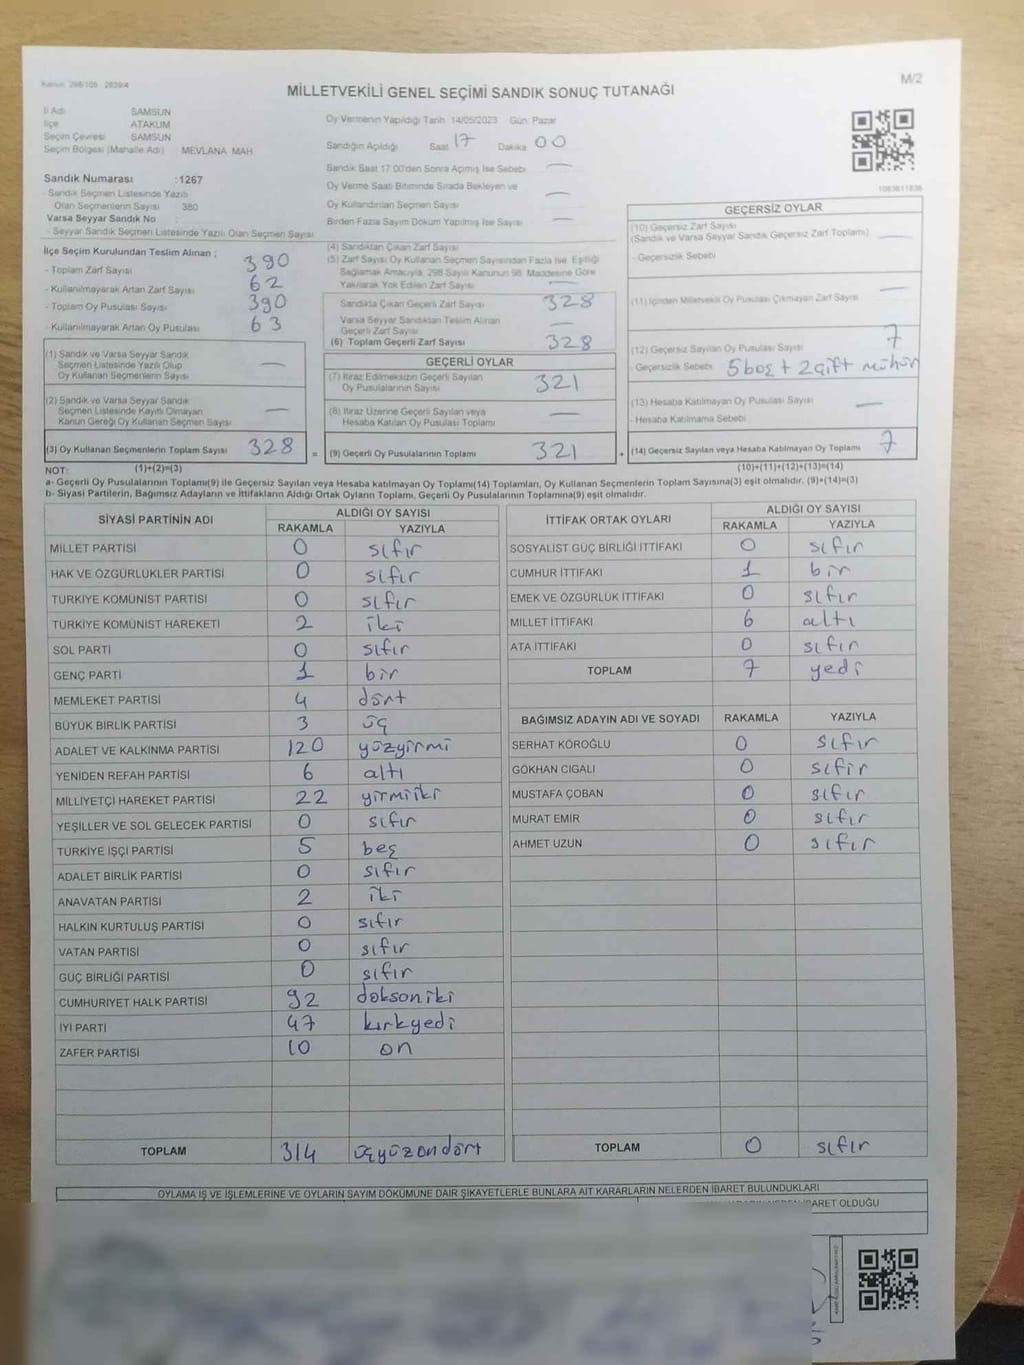 Kanun: 298/105 - 2839/4
M/2
MİLLETVEKİLİ GENEL SEÇİMİ SANDIK SONUÇ TUTANAĞI
İl Adı SAMSUN
İlçe ATAKUM
Seçim Çevresi SAMSUN
Seçim Bölgesi (Mahalle Adı) MEVLANA MAH
Sandık Numarası :1267
- Sandık Seçmen Listesinde Yazılı
Olan Seçmenlerin Sayısı 380
Varsa Seyyar Sandık No :
- Seyyar Sandık Seçmen Listesinde Yazılı Olan Seçmen Sayısı
Oy Vermenin Yapıldığı Tarih 14/05/2023 Gün: Pazar
Sandığın Açıldığı Saat 17 Dakika 00
Sandık Saat 17:00'den Sonra Açılmış İse Sebebi —
Oy Verme Saati Bitiminde Sırada Bekleyen ve
Oy Kullandırılan Seçmen Sayısı —
Birden Fazla Sayım Döküm Yapılmış İse Sayısı —
1083611836
İlçe Seçim Kurulundan Teslim Alınan ;
- Toplam Zarf Sayısı 390
- Kullanılmayarak Artan Zarf Sayısı 62
- Toplam Oy Pusulası Sayısı 390
- Kullanılmayarak Artan Oy Pusulası 63
(1) Sandık ve Varsa Seyyar Sandık
Seçmen Listesinde Yazılı Olup
Oy Kullanan Seçmenlerin Sayısı —
(2) Sandık ve Varsa Seyyar Sandık
Seçmen Listesinde Kayıtlı Olmayan
Kanun Gereği Oy Kullanan Seçmen Sayısı —
(3) Oy Kullanan Seçmenlerin Toplam Sayısı 328 =
(1)+(2)=(3)
(4) Sandıktan Çıkan Zarf Sayısı
(5) Zarf Sayısı Oy Kullanan Seçmen Sayısından Fazla İse, Eşitliği
Sağlamak Amacıyla, 298 Sayılı Kanunun 98. Maddesine Göre
Yakılarak Yok Edilen Zarf Sayısı —
Sandıkta Çıkan Geçerli Zarf Sayısı 328
Varsa Seyyar Sandıktan Teslim Alınan
Geçerli Zarf Sayısı —
(6) Toplam Geçerli Zarf Sayısı 328
GEÇERLİ OYLAR
(7) İtiraz Edilmeksizin Geçerli Sayılan
Oy Pusulalarının Sayısı 321
(8) İtiraz Üzerine Geçerli Sayılan veya
Hesaba Katılan Oy Pusulası Toplamı —
(9) Geçerli Oy Pusulalarının Toplamı 321 +
GEÇERSİZ OYLAR
(10) Geçersiz Zarf Sayısı
(Sandık ve Varsa Seyyar Sandık Geçersiz Zarf Toplamı) —
- Geçersizlik Sebebi
(11) İçinden Milletvekili Oy Pusulası Çıkmayan Zarf Sayısı —
(12) Geçersiz Sayılan Oy Pusulası Sayısı 7
- Geçersizlik Sebebi 5 boş + 2 çift mühür
(13) Hesaba Katılmayan Oy Pusulası Sayısı —
- Hesaba Katılmama Sebebi
(14) Geçersiz Sayılan veya Hesaba Katılmayan Oy Toplamı 7
(10)+(11)+(12)+(13)=(14)
NOT:
a- Geçerli Oy Pusulalarının Toplamı(9) ile Geçersiz Sayılan veya Hesaba katılmayan Oy Toplamı(14) Toplamları, Oy Kullanan Seçmenlerin Toplam Sayısına(3) eşit olmalıdır. (9)+(14)=(3)
b- Siyasi Partilerin, Bağımsız Adayların ve İttifakların Aldığı Ortak Oyların Toplamı, Geçerli Oy Pusulalarının Toplamına(9) eşit olmalıdır.
SİYASİ PARTİNİN ADI ALDIĞI OY SAYISI
RAKAMLA YAZIYLA
MİLLET PARTİSİ 0 sıfır
HAK VE ÖZGÜRLÜKLER PARTİSİ 0 sıfır
TÜRKİYE KOMÜNİST PARTİSİ 0 sıfır
TÜRKİYE KOMÜNİST HAREKETİ 2 iki
SOL PARTİ 0 sıfır
GENÇ PARTİ 1 bir
MEMLEKET PARTİSİ 4 dört
BÜYÜK BİRLİK PARTİSİ 3 üç
ADALET VE KALKINMA PARTİSİ 120 yüzyirmi
YENİDEN REFAH PARTİSİ 6 altı
MİLLİYETÇİ HAREKET PARTİSİ 22 yirmiiki
YEŞİLLER VE SOL GELECEK PARTİSİ 0 sıfır
TÜRKİYE İŞÇİ PARTİSİ 5 beş
ADALET BİRLİK PARTİSİ 0 sıfır
ANAVATAN PARTİSİ 2 iki
HALKIN KURTULUŞ PARTİSİ 0 sıfır
VATAN PARTİSİ 0 sıfır
GÜÇ BİRLİĞİ PARTİSİ 0 sıfır
CUMHURİYET HALK PARTİSİ 92 doksaniki
İYİ PARTİ 47 kırkyedi
ZAFER PARTİSİ 10 on
TOPLAM 314 üçyüzondört
İTTİFAK ORTAK OYLARI ALDIĞI OY SAYISI
RAKAMLA YAZIYLA
SOSYALİST GÜÇ BİRLİĞİ İTTİFAKI 0 sıfır
CUMHUR İTTİFAKI 1 bir
EMEK VE ÖZGÜRLÜK İTTİFAKI 0 sıfır
MİLLET İTTİFAKI 6 altı
ATA İTTİFAKI 0 sıfır
TOPLAM 7 yedi
BAĞIMSIZ ADAYIN ADI VE SOYADI RAKAMLA YAZIYLA
SERHAT KÖROĞLU 0 sıfır
GÖKHAN CIGALI 0 sıfır
MUSTAFA ÇOBAN 0 sıfır
MURAT EMİR 0 sıfır
AHMET UZUN 0 sıfır
TOPLAM 0 sıfır
OYLAMA İŞ VE İŞLEMLERİNE VE OYLARIN SAYIM DÖKÜMÜNE DAİR ŞİKAYETLERLE BUNLARA AİT KARARLARIN NELERDEN İBARET BULUNDUKLARI
İBARET OLDUĞU